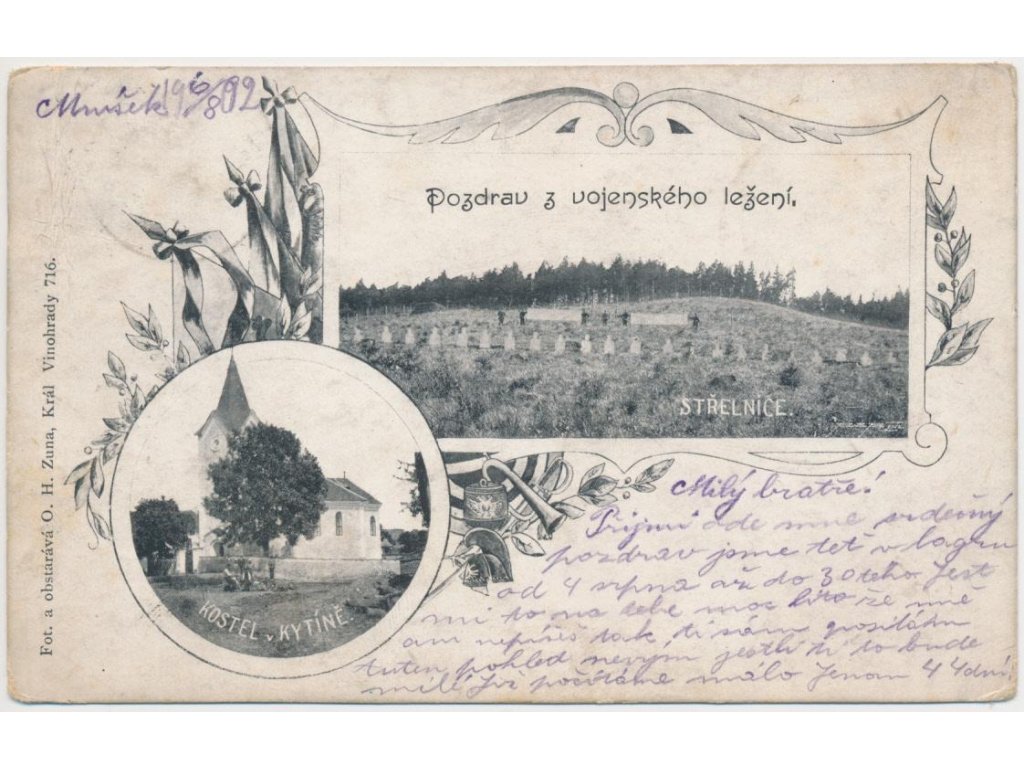 Mníšek 19 6/8 02
Pozdrav z vojenského ležení.
STŘELNICE.
KOSTEL v KYTÍNĚ.
Fot. a obstárává O. H. Zuna, Král Vinohrady 716.
Milý bratře!
Přijmi ode mne srdečný
pozdrav jsme teť v lagru
od 4 srpna až do 30 teho. Jest
mi to na tebe moc líto že mně
ani nepíšeš tak ti sám posílám
tuten pohled nevým jestli ti to bude
milé Již počítáme málo Jenom 44 dní.